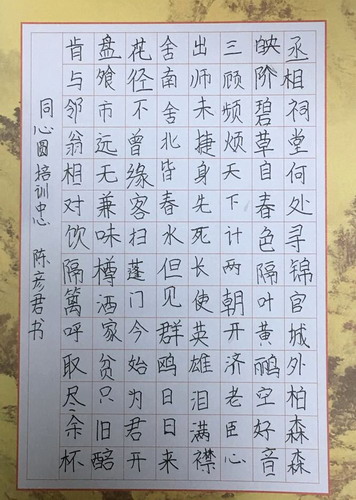 丞相祠堂何处寻锦官城外柏森森
映阶碧草自春色隔叶黄鹂空好音
三顾频烦天下计两朝开济老臣心
出师未捷身先死长使英雄泪满襟
舍南舍北皆春水但见群鸥日日来
花径不曾缘客扫蓬门今始为君开
盘飧市远无兼味樽酒家贫只旧醅
肯与邻翁相对饮隔篱呼取尽余杯
同心圆培训中心 陈彦君书